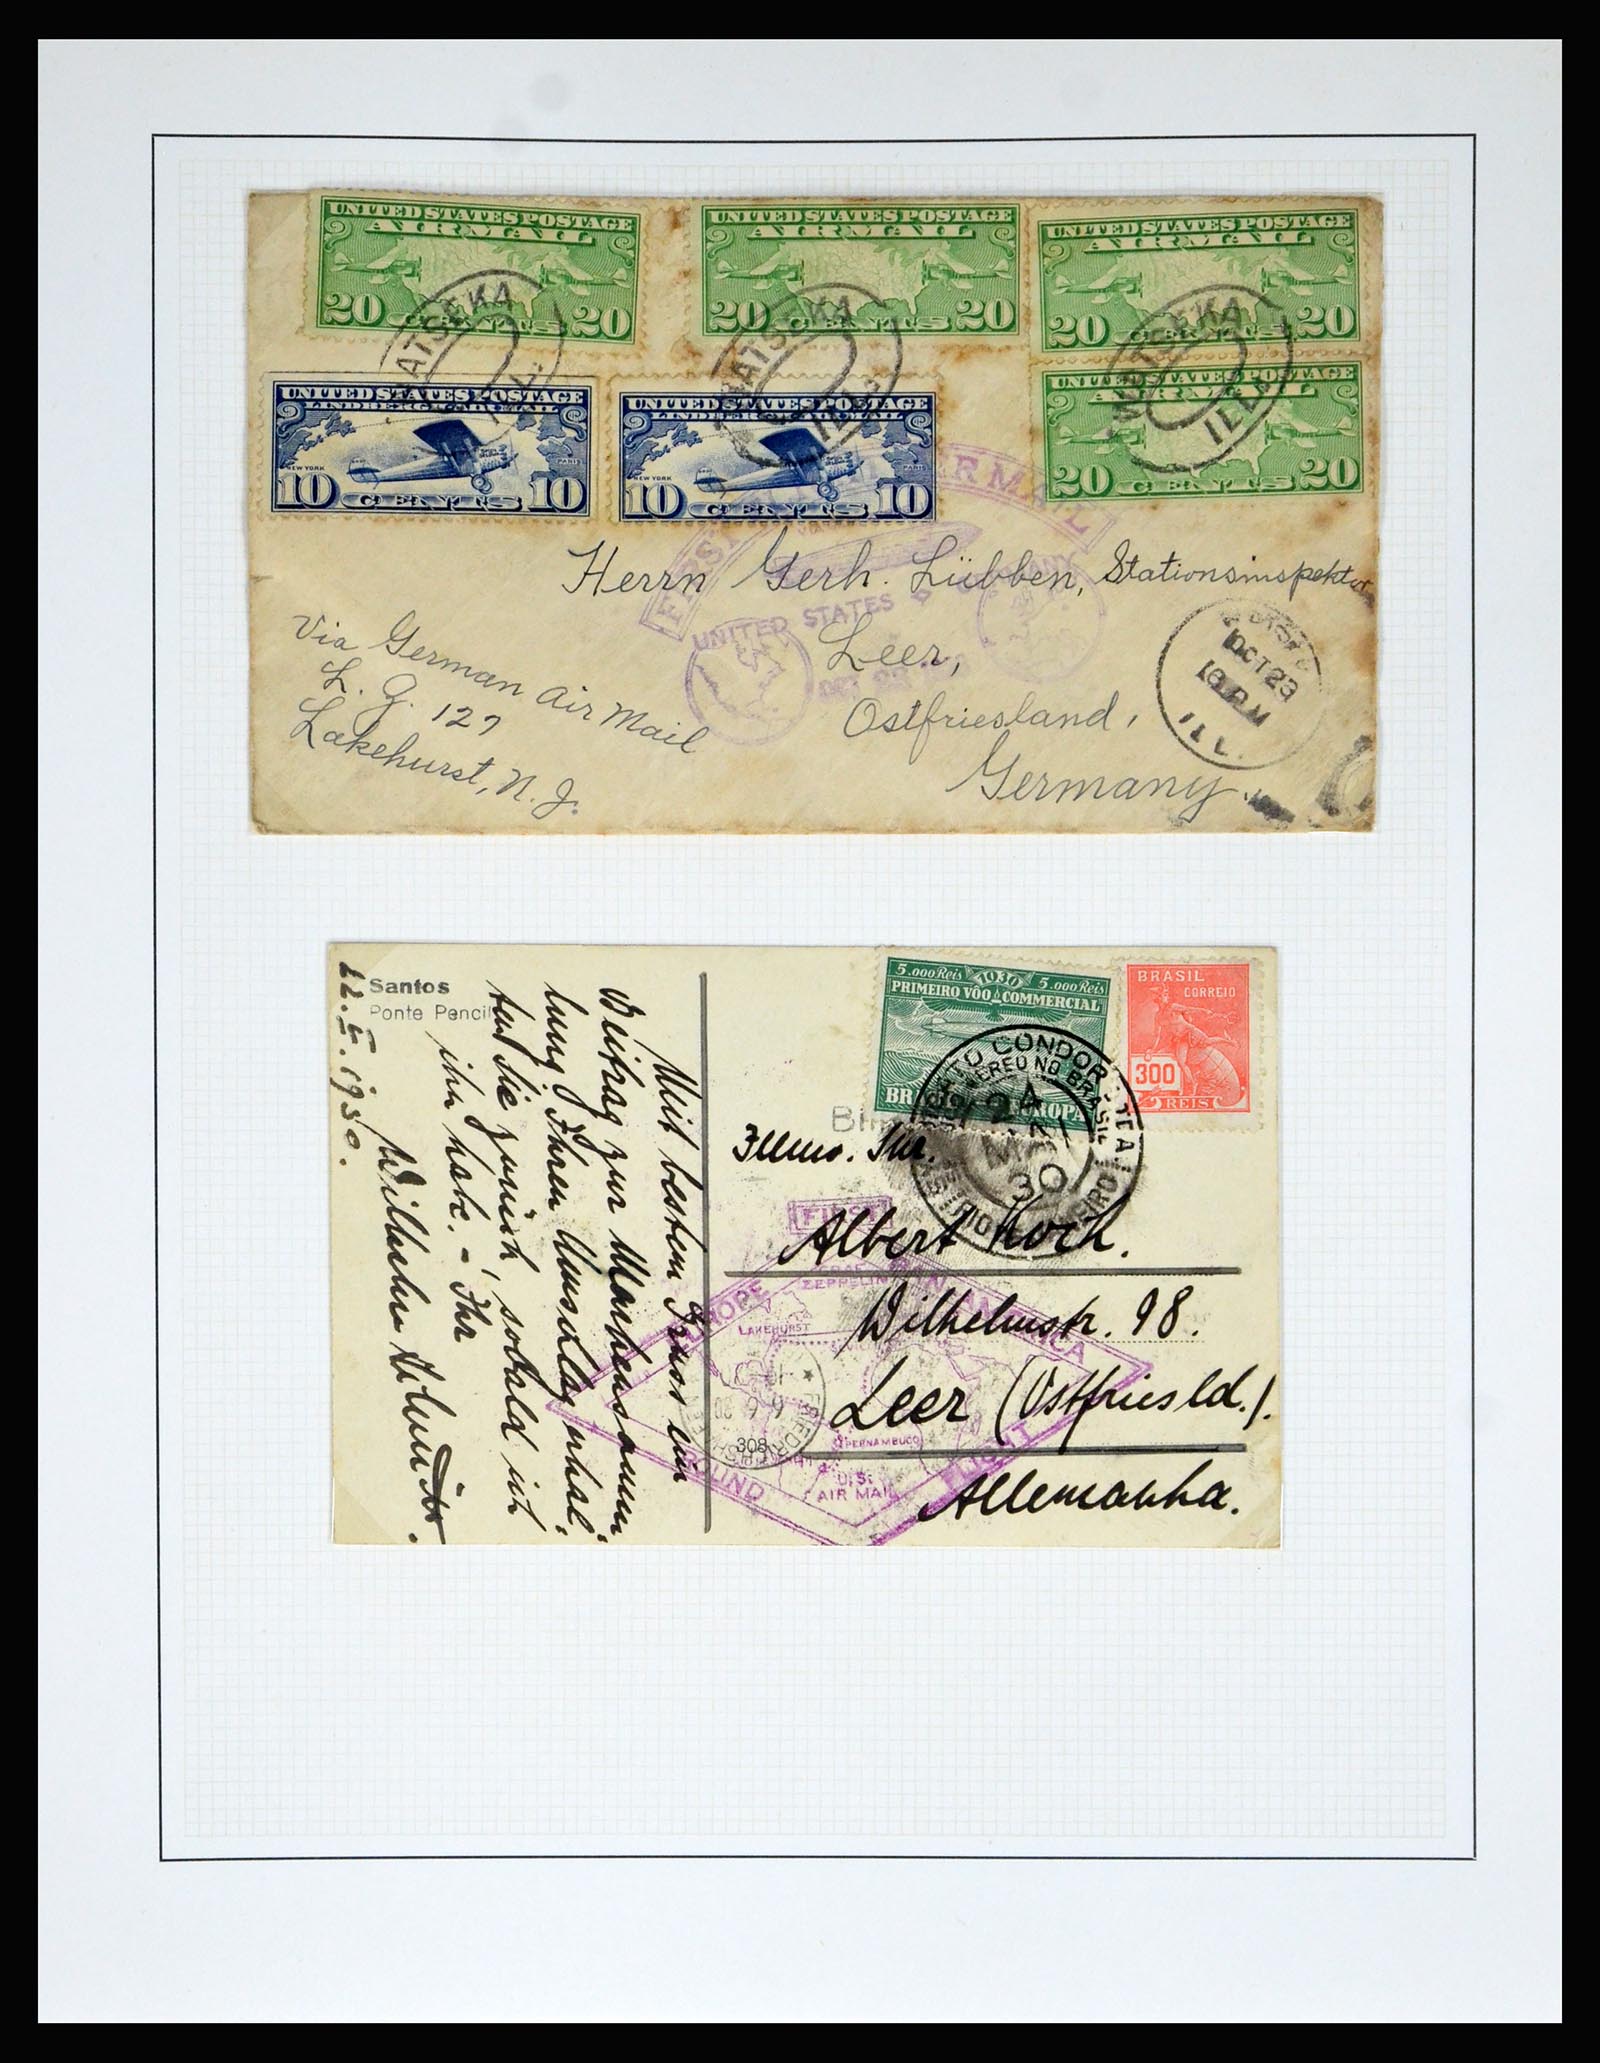 UNITED STATES POSTAGE
AIR MAIL
20 CENTS 20
UNITED STATES POSTAGE
AIR MAIL
20 CENTS 20
UNITED STATES POSTAGE
AIR MAIL
20 CENTS 20
WATSEKA
ILL.
WATSEKA
ILL.
WATSEKA
ILL.
UNITED STATES POSTAGE
LINDBERGH AIR MAIL
NEW YORK
PARIS
10 CENTS 10
UNITED STATES POSTAGE
LINDBERGH AIR MAIL
NEW YORK
PARIS
10 CENTS 10
UNITED STATES POSTAGE
AIR MAIL
20 CENTS 20
FIRST FLIGHT AIR MAIL
UNITED STATES
GERMANY
OCT
Herrn Gerh. Lübben, Stationsinspektor
Leer,
Ostfriesland,
Germany
Via German Air Mail
L. Z. 127
Lakehurst, N. J.
OCT 23
ILL.
Santos
Ponte Pencil
22. 5. 1930.
Mit bestem Gruss ein
Beitrag zur Markensamm-
lung. Ihren Umschlag erhal-
ten Sie zurück, sobald ich
ihn habe. - Ihr
Wilhelm
5.000 Reis 1930 5.000 Reis
PRIMEIRO VÔO COMMERCIAL
BRASIL EUROPA
BRASIL
CORREIO
300
REIS
SYNDICATO CONDOR LTDA
AEREO NO BRASIL
24
30
RIO DE JANEIRO
Illmo. Snr.
Albert Koch.
Wilhelmstr. 98.
Leer (Ostfriesld.).
Allemanha.
FIRST
EUROPE PAN AMERICA
GRAF
ZEPPELIN
LAKEHURST
PERNAMBUCO
U.S.
AIR MAIL
ROUND FLIGHT
308